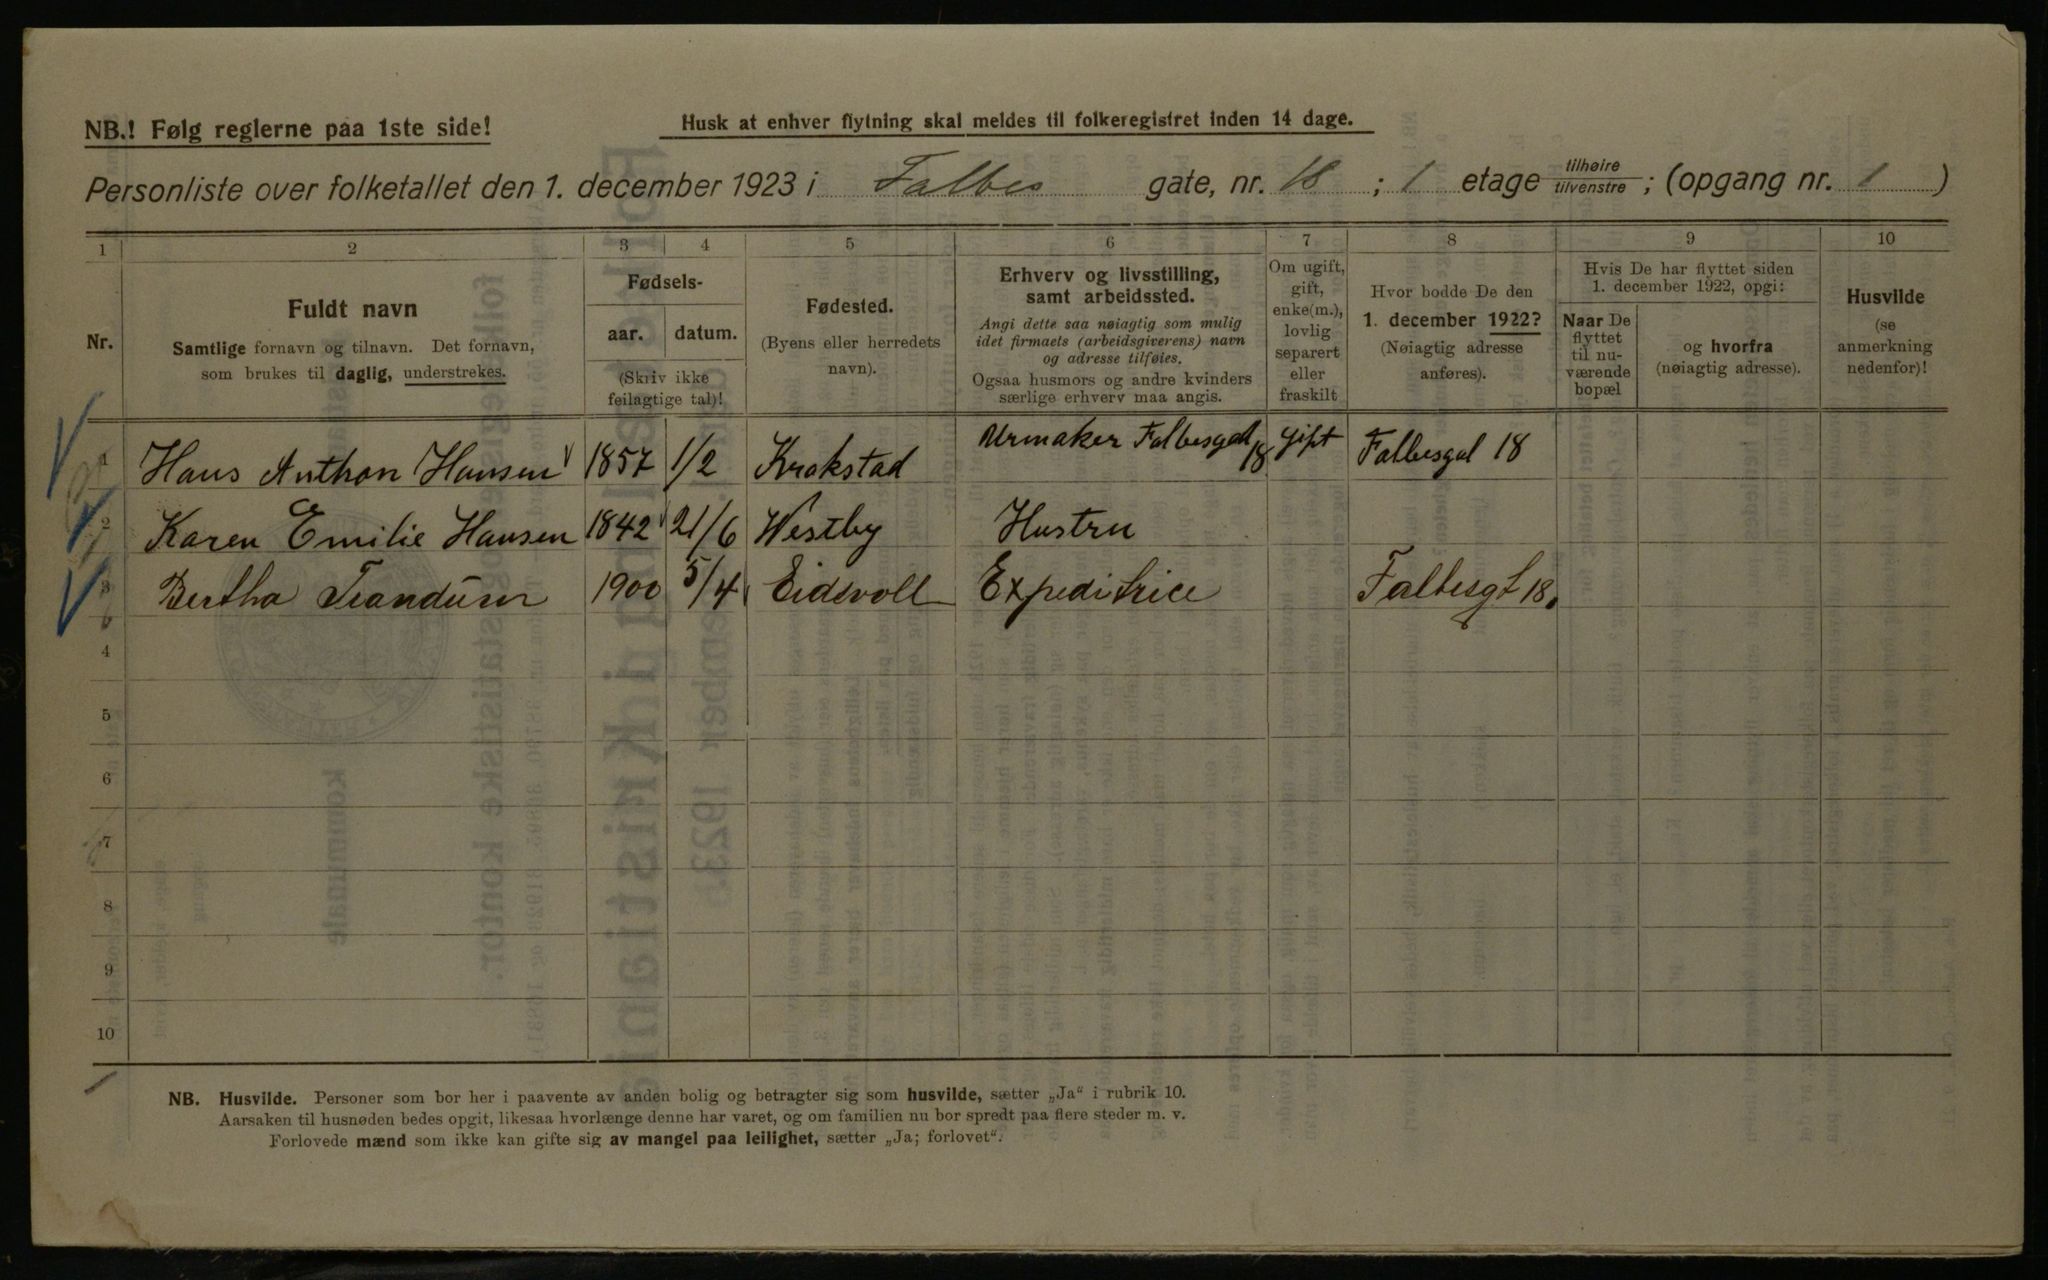 NB.! Følg reglerne paa 1ste side!
Husk at enhver flytning skal meldes til folkeregistret inden 14 dage.
Personliste over folketallet den 1. december 1923 i Falbes gate, nr. 18 ; 1 etage tilhøire tilvenstre ; (opgang nr. 1 )
1 2 3 4 5 6 7 8 9 10
Nr.
Fuldt navn
Samtlige fornavn og tilnavn. Det fornavn,
som brukes til daglig, understrekes.
Fødsels-
aar. datum.
(Skriv ikke
feilagtige tal)!
Fødested.
(Byens eller herredets
navn).
Erhverv og livsstilling,
samt arbeidssted.
Angi dette saa nøiagtig som mulig
idet firmaets (arbeidsgiverens) navn
og adresse tilføies.
Ogsaa husmors og andre kvinders
særlige erhverv maa angis.
Om ugift,
gift,
enke(m.),
lovlig
separert
eller
fraskilt
Hvor bodde De den
1. december 1922?
(Nøiagtig adresse
anføres).
Hvis De har flyttet siden
1. december 1922, opgi:
Naar De
flyttet
til nu-
værende
bopæl
og hvorfra
(nøiagtig adresse).
Husvilde
(se
anmerkning
nedenfor)!
1 Hans Anthon Hansen 1857 1/2 Krokstad Urmaker Falbesgat 18 gift Falbesgat 18
2 Karen Emilie Hansen 1842 21/6 Westby Hustru
3 Bertha 1900 5/4 Eidsvoll Expeditrice Falbesgt 18.
4
5
6
7
8
9
10
NB. Husvilde. Personer som bor her i paavente av anden bolig og betragter sig som husvilde, sætter „Ja“ i rubrik 10.
Aarsaken til husnøden bedes opgit, likesaa hvorlænge denne har varet, og om familien nu bor spredt paa flere steder m. v.
Forlovede mænd som ikke kan gifte sig av mangel paa leilighet, sætter „Ja; forlovet“.